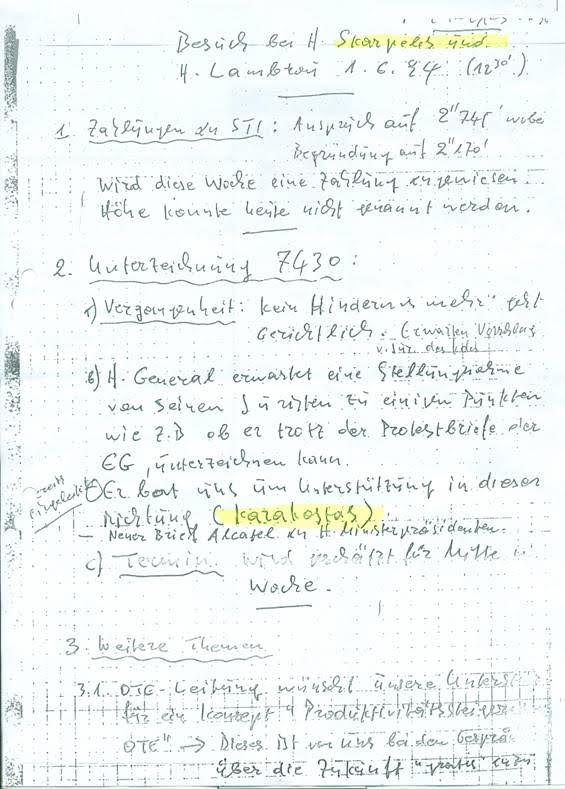 Besuch bei H. Skarpelis und
H. Lambrou 1. 6. 94 (12³⁰)
1. Zahlungen an STI: Anspruch auf 2"745' wobei
Begründung auf 2"170'
Wird diese Woche eine Zahlung angewiesen.
Höhe konnte heute nicht genannt werden.
2. Unterzeichnung 7430:
a) Vergangenheit: kein Hindernis mehr geht
Gerichtlich. Erwarten Vorschlag
b) H. General erwartet eine Stellungnahme
von seinen Juristen zu einigen Punkten
wie z.B ob er trotz der Protestbriefe der
EG, unterzeichnen kann.
Er bat uns um Unterstützung in dieser
Richtung (Karakostas)
eingeleitet
- Neuer Brief Alcatel an H. Ministerpräsidenten.
c) Termin wird geschätzt für Mitte
Woche.
3. Weitere Themen
3.1. OTE-Leitung wünscht unsere Unterst
für ein Konzept "Produktivitätssteiger
OTE" → Dieses ist von uns bei den Gesprä
über die Zukunft "gratis"